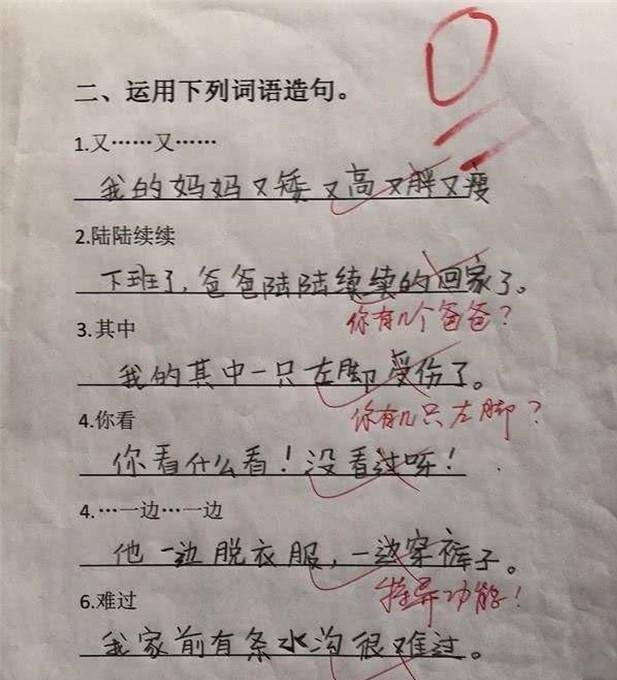 二、运用下列词语造句。
1.又……又……
我的妈妈又矮又高又胖又瘦
2.陆陆续续
下班了，爸爸陆陆续续的回家了。
你有几个爸爸？
3.其中
我的其中一只左脚受伤了。
你有几只左脚？
4.你看
你看什么看！没看过呀！
4.…一边…一边
他一边脱衣服，一边穿裤子。
特异功能！
6.难过
我家前有条水沟很难过。